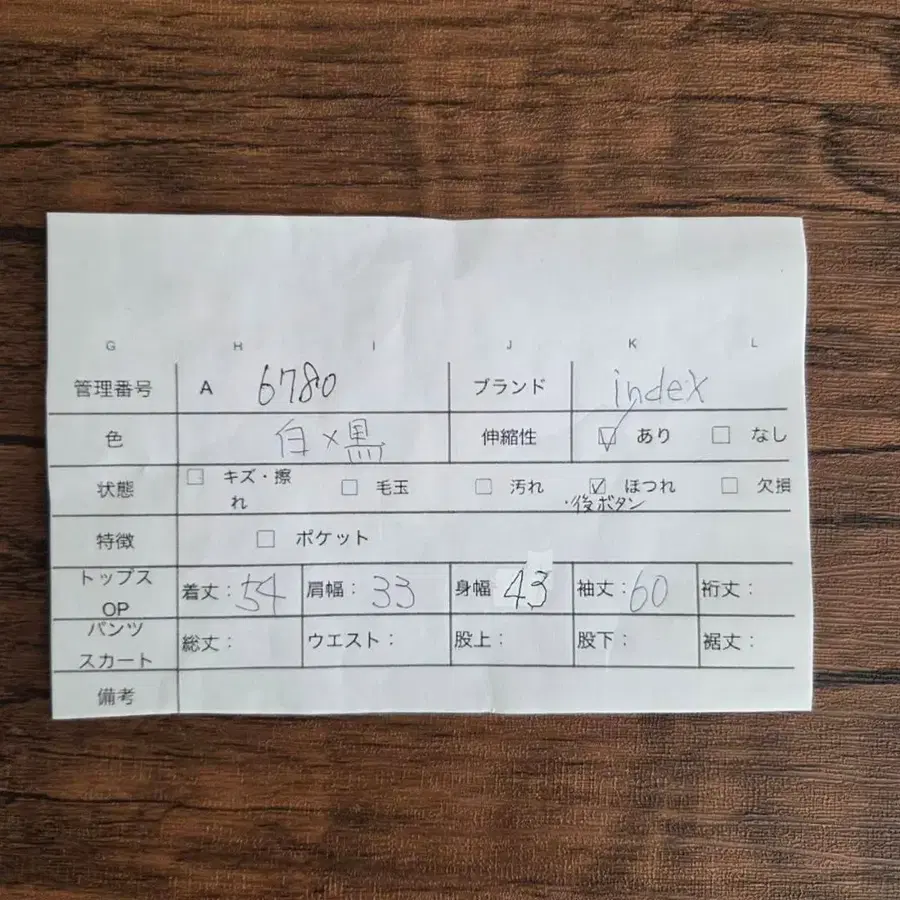 G H I J K L
管理番号 A 6780 ブランド index
色 白×黒 伸縮性 ☑ あり □ なし
状態 □ キズ・擦れ □ 毛玉 □ 汚れ ☑ ほつれ □ 欠損
・後ボタン
特徴 □ ポケット
トップス OP 着丈：54 肩幅：33 身幅 43 袖丈：60 裄丈：
パンツ スカート 総丈： ウエスト： 股上： 股下： 裾丈：
備考